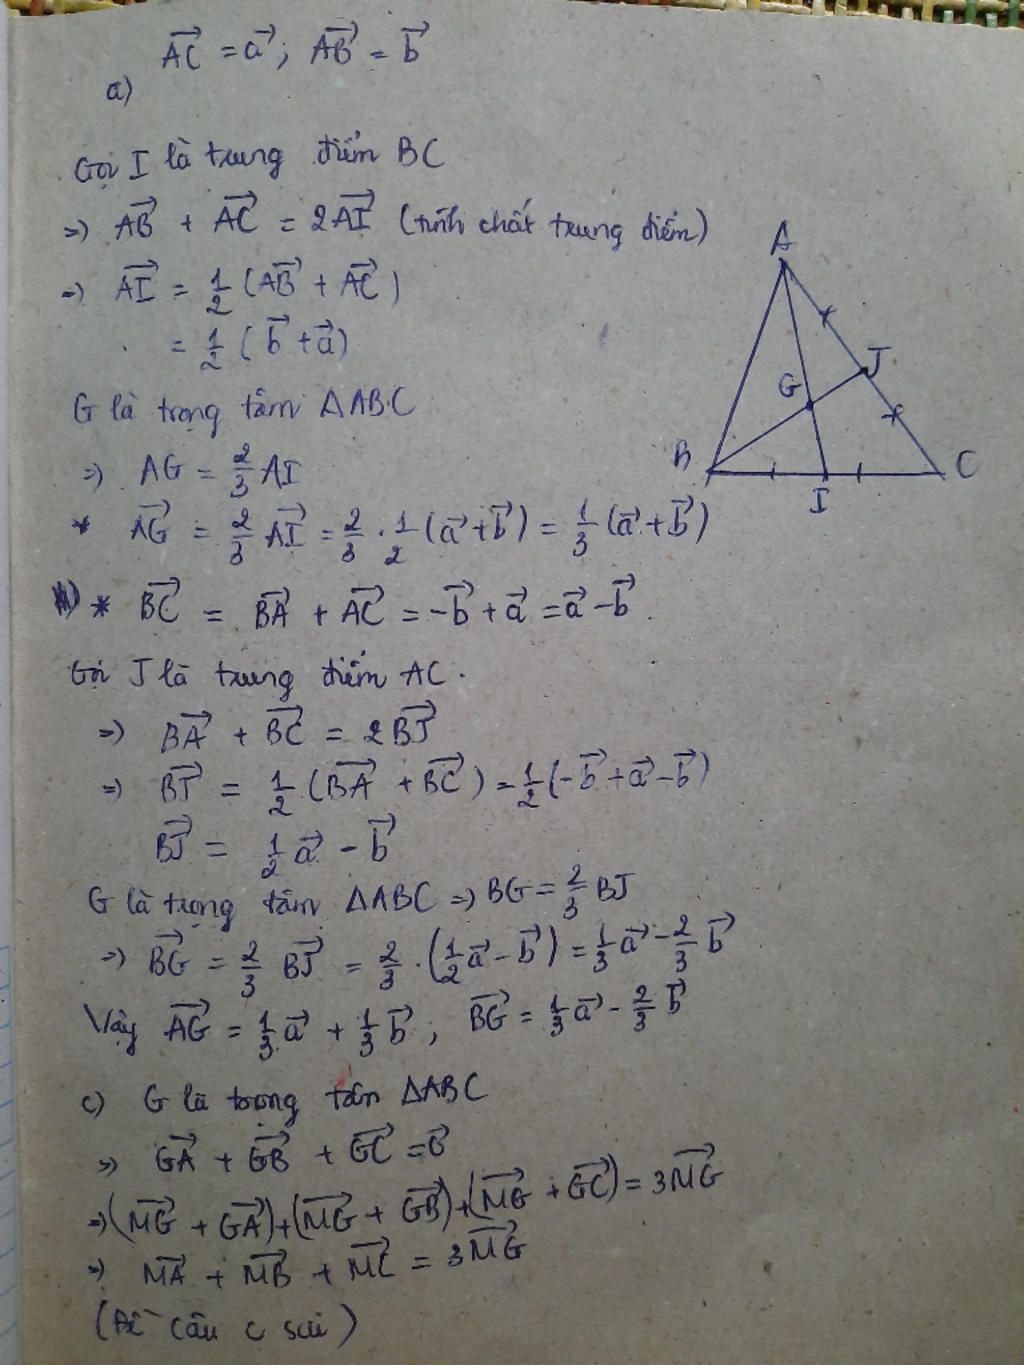 AC→ = a→ ; AB→ = b→
a)
Gọi I là trung điểm BC
=> AB→ + AC→ = 2AI→ (tính chất trung điểm)
=> AI→ = 1/2 (AB→ + AC→)
= 1/2 (b→ + a→)
G là trọng tâm ΔABC
=> AG = 2/3 AI
* AG→ = 2/3 AI→ = 2/3 . 1/2 (a→ + b→) = 1/3 (a→ + b→)
* BC→ = BA→ + AC→ = -b→ + a→ = a→ - b→.
Gọi J là trung điểm AC.
=> BA→ + BC→ = 2BJ→
=> BJ→ = 1/2 (BA→ + BC→) = 1/2 (-b→ + a→ - b→)
BJ→ = 1/2 a→ - b→
G là trọng tâm ΔABC => BG = 2/3 BJ
=> BG→ = 2/3 BJ→ = 2/3 . (1/2 a→ - b→) = 1/3 a→ - 2/3 b→
Vậy AG→ = 1/3 a→ + 1/3 b→ ; BG→ = 1/3 a→ - 2/3 b→
c) G là trọng tâm ΔABC
=> GA→ + GB→ + GC→ = 0→
=> (MG→ + GA→) + (MG→ + GB→) + (MG→ + GC→) = 3MG→
=> MA→ + MB→ + MC→ = 3MG→
(Đề câu c sai)
A
J
G
B
I
C